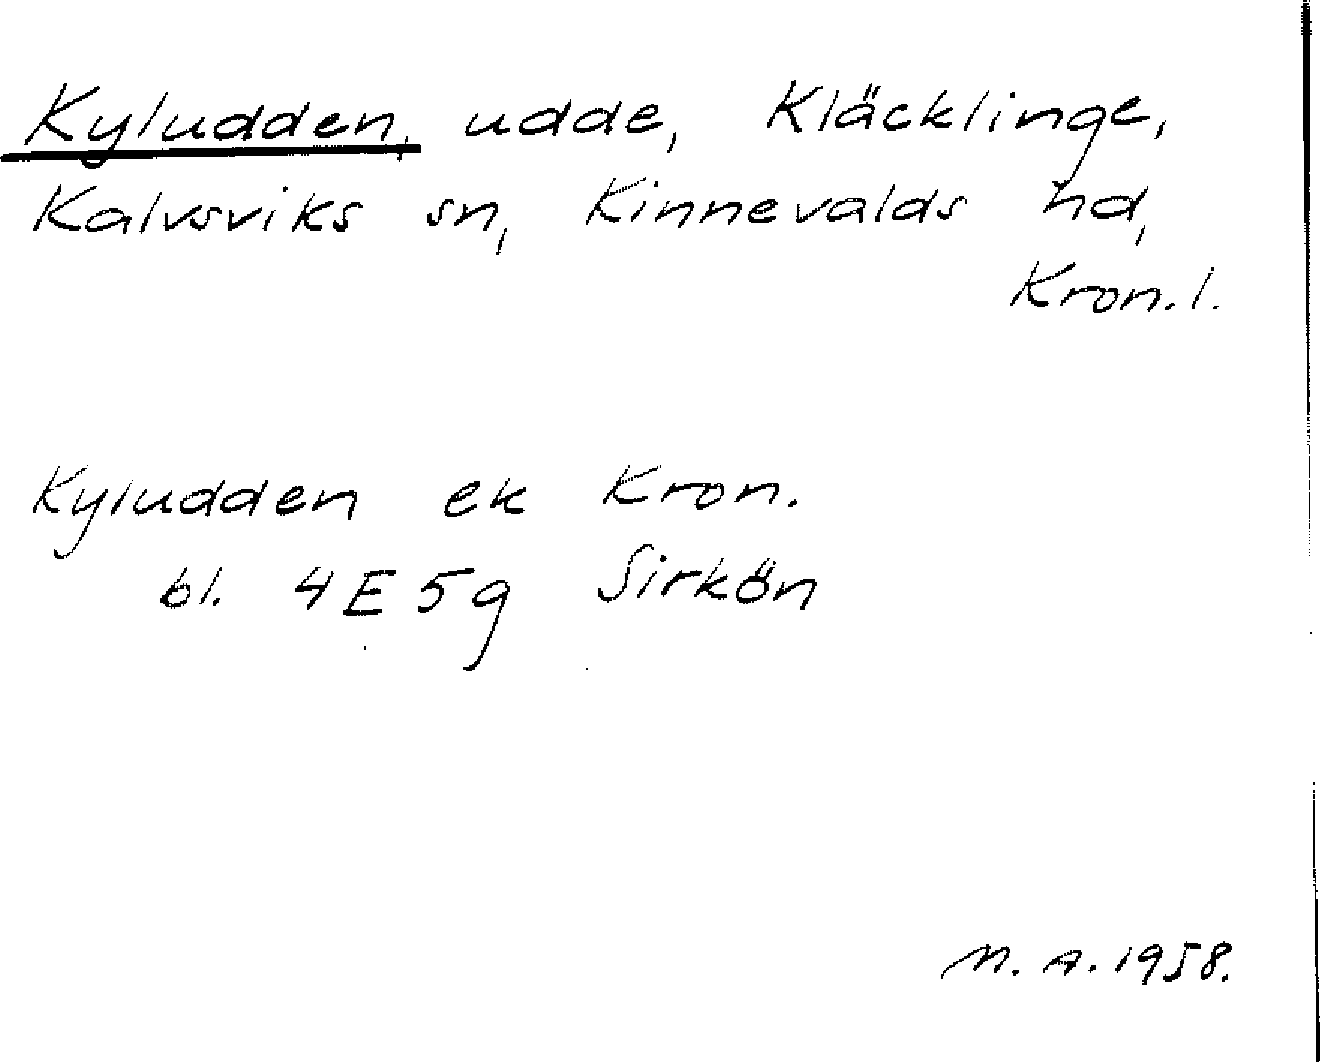 Kyludden, udde, Kläcklinge,
Kalvsviks sn, Kinnevalds hd,
Kron.l.
Kyludden ek Kron.
bl. 4E5g Sirkön
M. A. 1958.